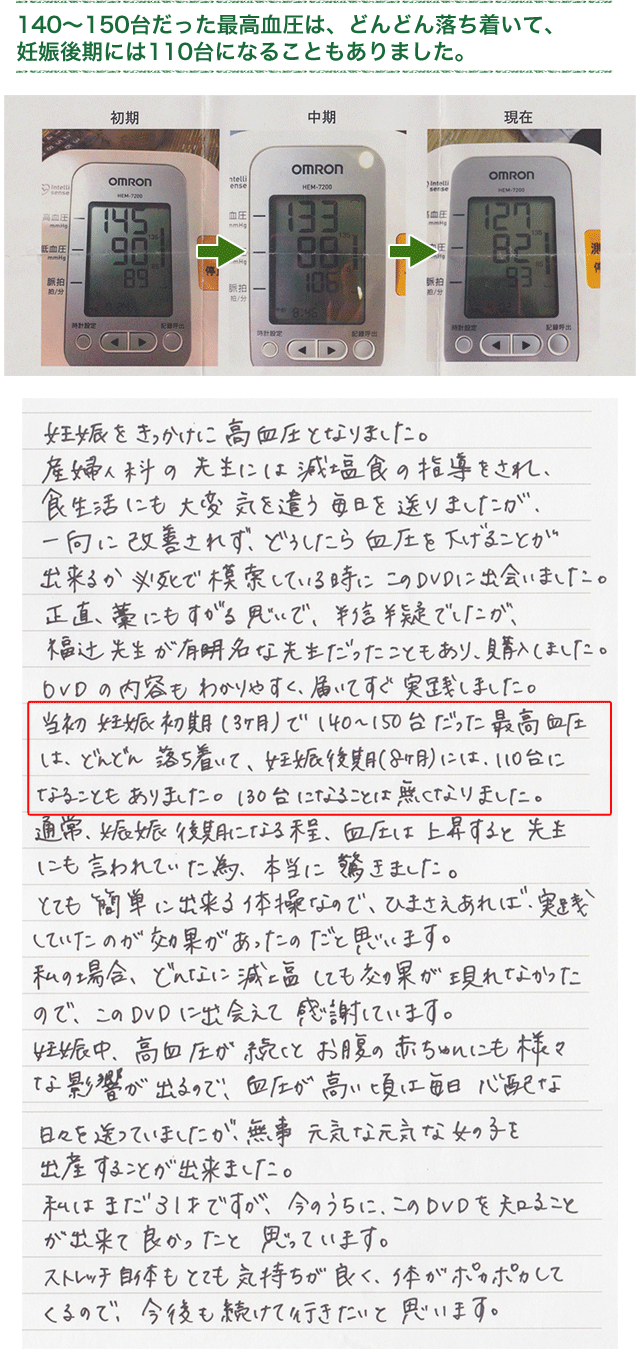 140～150台だった最高血圧は、どんどん落ち着いて、
妊娠後期には110台になることもありました。
初期
中期
現在
Intelli sense
OMRON
HEM-7200
高血圧 mmHg
145
低血圧 mmHg
90
脈拍 拍/分
89
時計設定
記録呼出
停
ntelli sense
OMRON
HEM-7200
血圧 mmHg
133
血圧 mmHg
脈拍 拍/分
106
8:45
時計設定
記録呼出
Intelli sense
OMRON
HEM-7200
高血圧 mmHg
127
血圧 mmHg
82
脈拍 拍/分
93
時計設定
記録呼出
測
停
妊娠をきっかけに高血圧となりました。
産婦人科の先生には減塩食の指導をされ、
食生活にも大変気を遣う毎日を送りましたが、
一向に改善されず、どうしたら血圧を下げることが
出来るか必死で模索している時にこのDVDに出会いました。
正直、藁にもすがる思いで、半信半疑でしたが、
福辻先生が有明名な先生だったこともあり、購入しました。
DVDの内容もわかりやすく、届いてすぐ実践しました。
当初妊娠初期(3ヶ月)で140～150台だった最高血圧
は、どんどん落ち着いて、妊娠後期(8ヶ月)には、110台に
なることもありました。130台になることは無くなりました。
通常、娠娠後期になる程、血圧は上昇すると先生
にも言われていた為、本当に驚きました。
とても簡単に出来る体操なので、ひまさえあれば、実践
していたのが効果があったのだと思います。
私の場合、どんなに減塩しても効果が現れなかった
ので、このDVDに出会えて感謝しています。
妊娠中、高血圧が続くとお腹の赤ちゃんにも様々
な影響が出るので、血圧が高い頃は毎日心配な
日々を送っていましたが、無事元気な元気な女の子を
出産することが出来ました。
私はまだ31才ですが、今のうちに、このDVDを知ること
が出来て良かったと思っています。
ストレッチ自体もとても気持ちが良く、体がポカポカして
くるので、今後も続けて行きたいと思います。